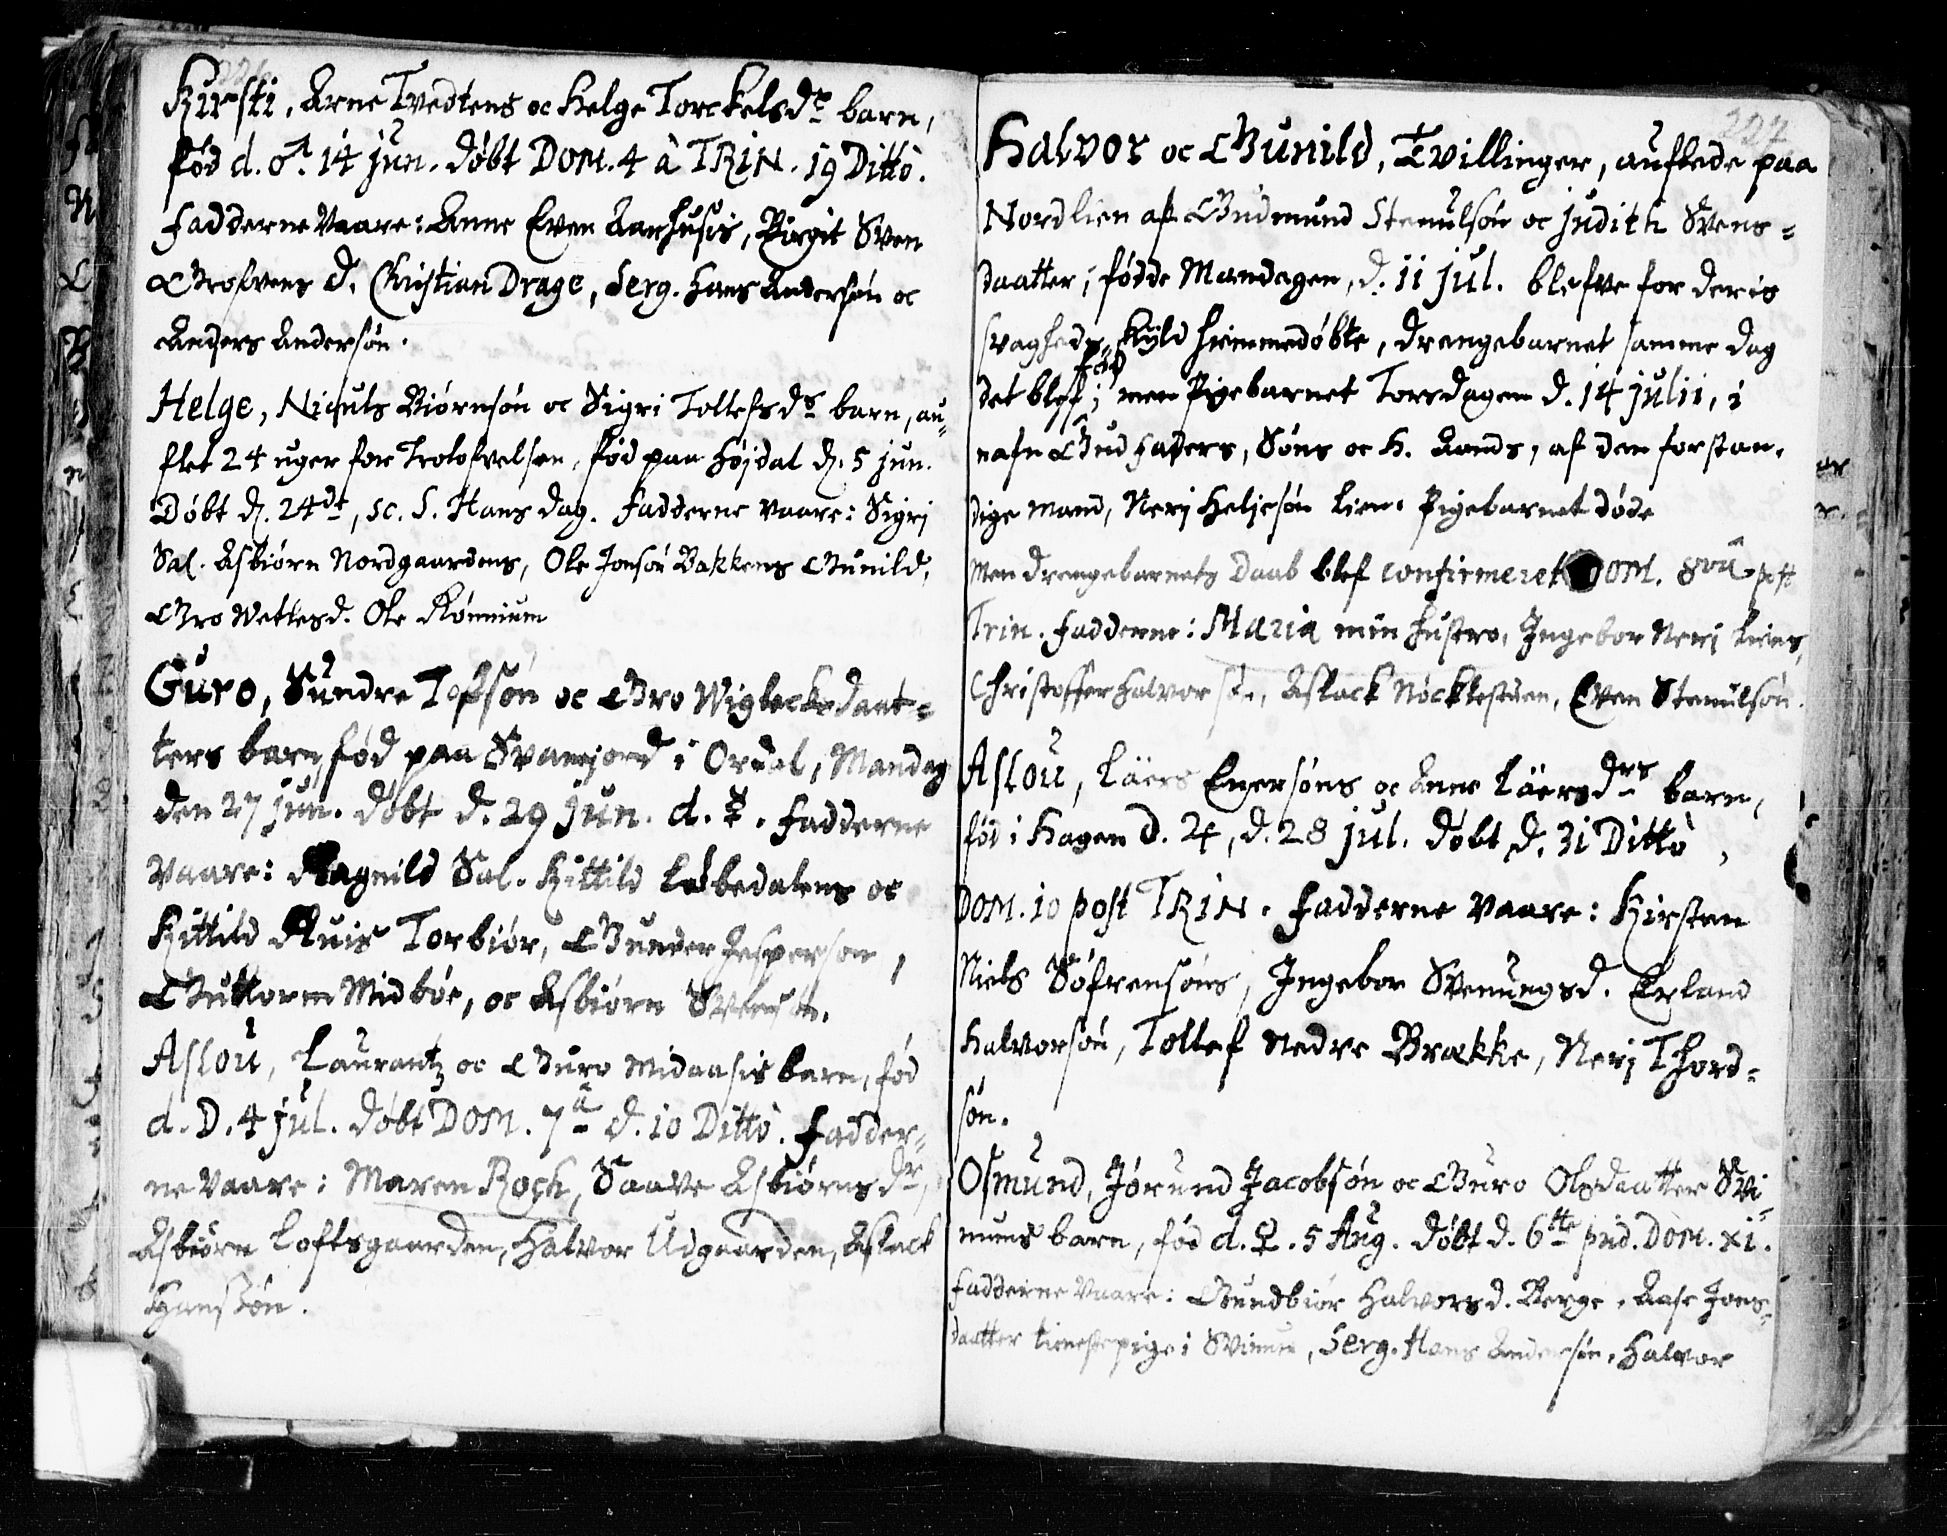 Kirsti, Arne Tvedtens oc Helge Torckelsdr barn,
fød d. ♂. 14 jun. døbt DOM. 4 à TRIN. 19 Ditto.
Fadderne vaare: Anne Even Aarhusis, Birgit Sven
Grofvens d. Christian Drage, Serg. Hans Andersøn oc
Anders Andersøn.
Helge, Niculs Biørnsøn oc Sigri Tollefsds barn, au-
flet 24 uger for Trolofvelsen, fød paa Højdal d. 5 jun.
Døbt d. 24de, sc. S. Hans dag. Fadderne vaare: Sigri
Sal. Asbiørn Nordgaardens, Ole Jonsøn Bakkens Gunild,
Gro Wettesd. Ole Rønnium
Guro, Sundre Tofsøn oc Gro Wiglecksdaat-
ters barn, fød paa Svanejord i Ordal, Mandag
den 27 jun. døbt d. 29 jun. d. ☿. Fadderne
vaare: Ragnild Sal. Kittild Løbedalens oc
Kittild Ruis Torbiør, Gunder Jesperson,
Guttorm Midbøe, oc Asbiørn Svensøn.
Aslou, Laurantz oc Guro Midaasis barn, fød
d. D. 4 jul. døbt DOM. 7a d. 10 Ditto. Fadder-
ne vaare: Maren Roch, Saave Asbiørnsdr,
Asbiørn Loftsgaarden, Halvor Udgaarden, Aslack
Hanssøn.
207
Halvor oc Gunild, Tvillinger, auflede paa
Nordlien af Gudmund Stenulsøn oc Judith Svens-
daatter, fødde Mandagen, d. 11 jul. blefve for deris
svagheds skyld hiemmedøbte, drengebarnet samme dag
det blef fød; men Pigebarnet Torsdagen d. 14 julii, i
nafn Gud Faders, Søns oc H. Aands, af den forstan-
dige mand, Neri Heljesøn Lien. Pigebarnet døde
men drengebarnets Daab blef confirmeret DOM. 8va post
Trin. Fadderne: Maria min hustro, Ingebor Neri Liens,
Christoffer Halvors., Aslack Nøcklestuen, Even Stenulsøn.
Aslou, Läers Enersøns oc Anne Läersdrs barn,
fød i Hagen d. ♃, d. 28 jul. døbt d. 31 Ditto,
DOM. 10 post TRIN. Fadderne vaare: Kirsten
Niels Søfrensøns, Ingebor Svenungsd. Erland
Halvorsøn, Tollef Nedre Brække, Neri Thord-
søn.
Osmund, Jørund Jacobsøn oc Guro Olsdaatter Svi-
nuns barn, fød d. ♀. 5 Aug. døbt d. 6te prid. Dom. XI.
Fadderne vaare: Gundbiør Halvorsd. Berge, Aase Jons-
daatter tienestepige i Svinun, Serg. Hans Andersøn, Halvor